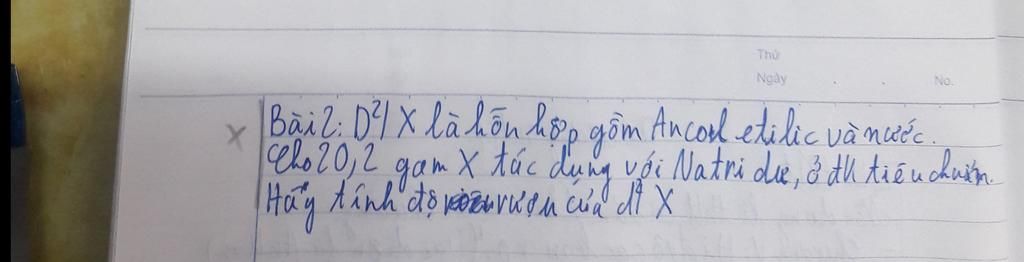 Thứ
Ngày . . No.
x Bài 2: D²/ X là hỗn hợp gồm Ancol etilic và nước.
Cho 20,2 gam X tác dụng với Natri dư, ở đk tiêu chuẩn.
Hãy tính độ rượu của d² X